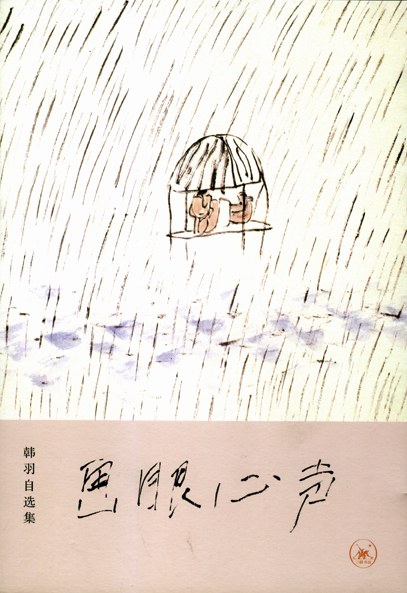 韩羽自选集
画眼心声